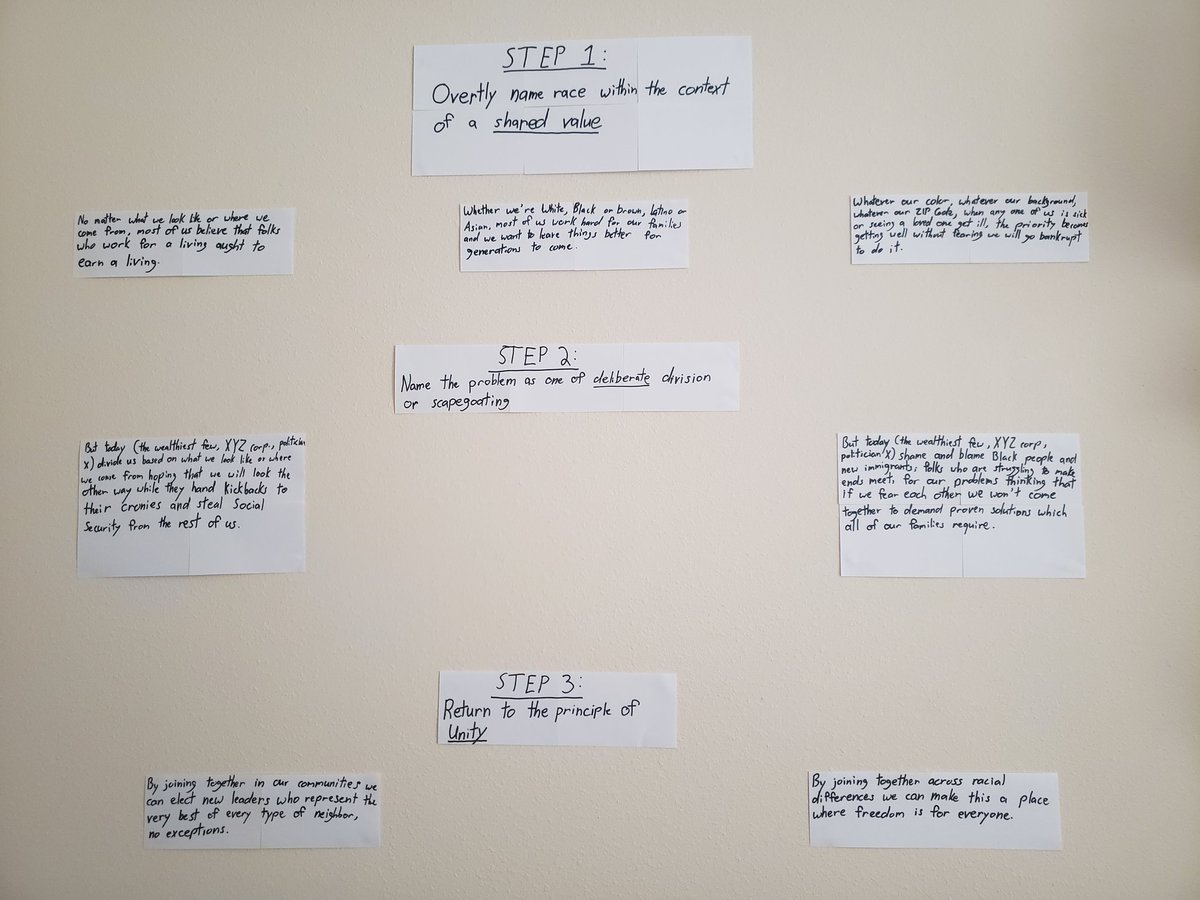 STEP 1:
Overtly name race within the context
of a shared value
No matter what we look like or where we
come from, most of us believe that folks
who work for a living aught to
earn a living.
Whether we're White, Black or brown, Latino or
Asian, most of us work hard for our families
and we want to leave things better for
generations to come.
Whatever our color, whatever our background,
whatever our ZIP Code, when any one of us is sick
or seeing a loved one get ill, the priority becomes
getting well without fearing we will go bankrupt
to do it.
STEP 2:
Name the problem as one of deliberate division
or scapegoating
But today (the wealthiest few, XYZ corp., politician
X) divide us based on what we look like or where
we come from hoping that we will look the
other way while they hand kickbacks to
their cronies and steal Social
Security from the rest of us.
But today (the wealthiest few, XYZ corp,
politician X) shame and blame Black people and
new immigrants; folks who are struggling to make
ends meet, for our problems thinking that
if we fear each other we won't come
together to demand proven solutions which
all of our families require.
STEP 3:
Return to the principle of
Unity
By joining together in our communities we
can elect new leaders who represent the
very best of every type of neighbor,
no exceptions.
By joining together across racial
differences we can make this a place
where freedom is for everyone.